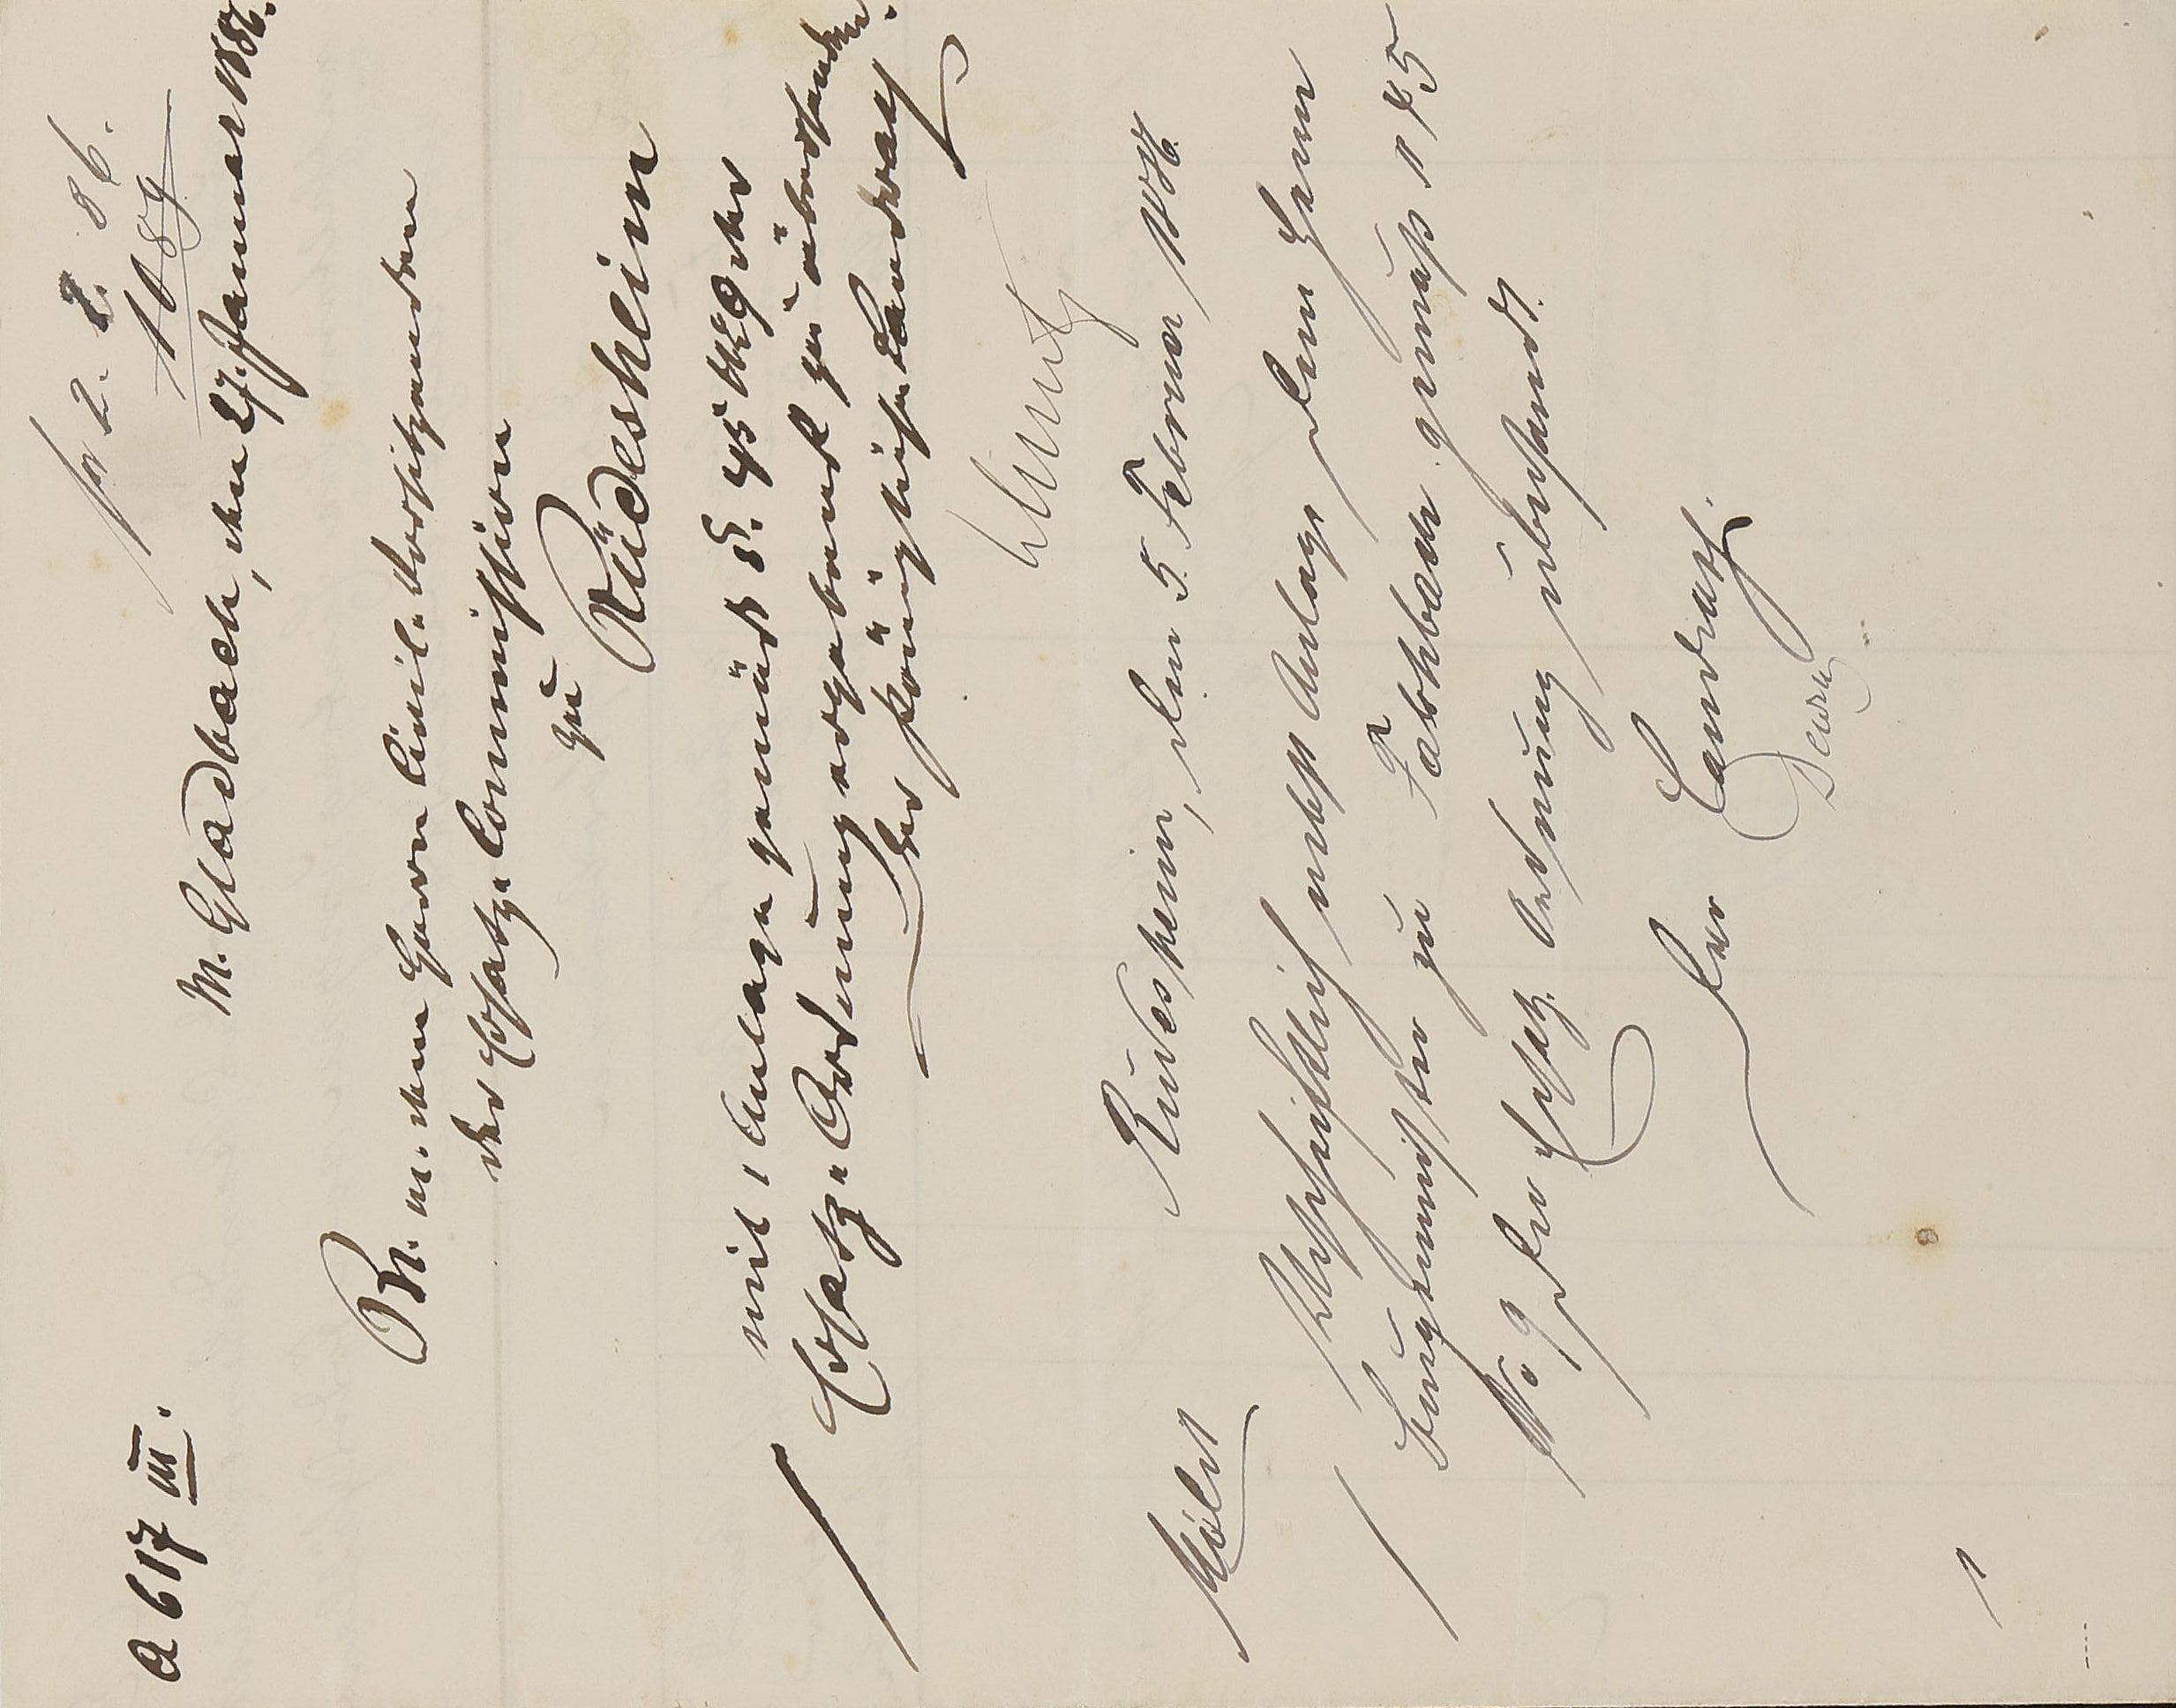 pr 2. 2. 86.
1089
A 617 III.
M. Gladbach, den 27. Januar 1886.
Br. m. dem Herrn Civil-Vorsitzenden
der Ersatz-Commission
zu Rüdesheim
mit 1 Anlage gemäß §. 45 No 9 der
Ersatz-Ordnung ergebenst zu übersenden.
Der Königliche Landrath
Rüdesheim, den 5. Februar 1886.
Urschriftlich nebst Anlage dem Herrn
Bürgermeister zu gemäß § 45
No 9 der Ersatz-Ordnung übersandt.
Der Landrath.